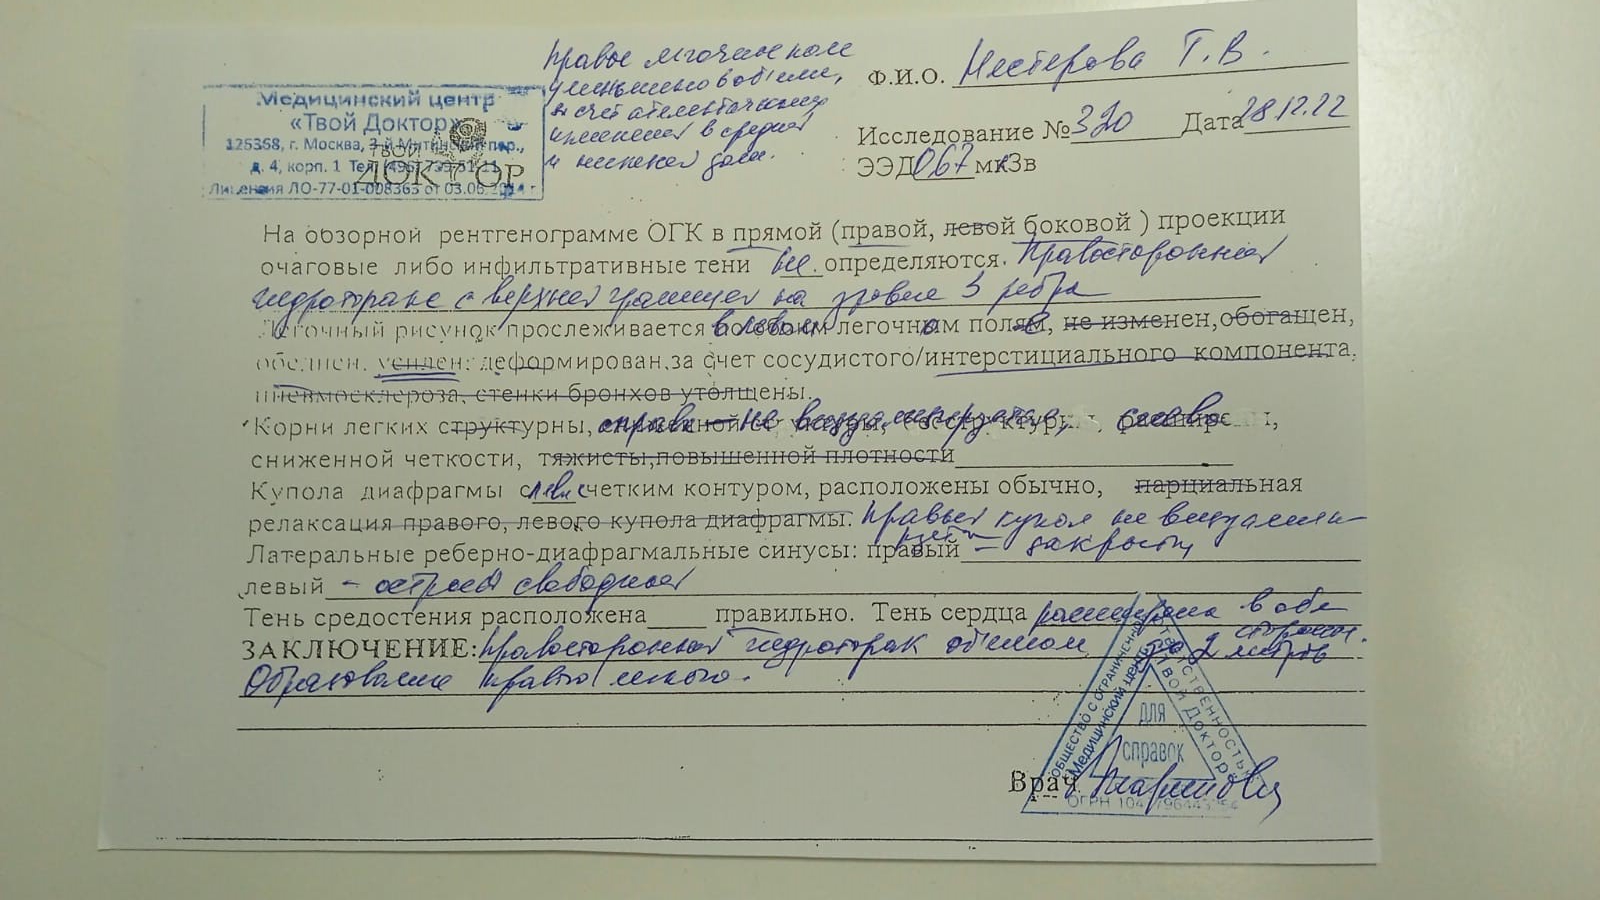 Медицинский центр
«Твой Доктор»
125368, г. Москва, 3-й Митинский пер.,
д. 4, корп. 1 Тел. (495) 759-51-11
Лицензия ЛО-77-01-008363 от 03.06.2014 г.
ТВОЙ
ДОКТОР
Правое легочное поле
уменьшено в объеме,
за счет
в средней
и нижней доли.
Ф.И.О. Нестерова Т. В.
Исследование № 320 Дата 28.12.22
ЭЭД 067 мкЗв
На обзорной рентгенограмме ОГК в прямой (правой, левой боковой) проекции
очаговые либо инфильтративные тени не определяются. Правосторонний
гидроторакс с верхней границей на уровне 3 ребра
Легочный рисунок прослеживается в левом легочном поле, не изменен, обогащен,
обеднен, усилен; деформирован за счет сосудистого/интерстициального компонента,
пневмосклероза, стенки бронхов утолщены.
Корни легких структурны, справа не слева
сниженной четкости, тяжисты, повышенной плотности
Купола диафрагмы с четким контуром, расположены обычно, парциальная
релаксация правого, левого купола диафрагмы. Правый купол не визуализи-
руется
Латеральные реберно-диафрагмальные синусы: правый – закрыт,
левый – острый свободный
Тень средостения расположена правильно. Тень сердца расширена в обе
стороны.
ЗАКЛЮЧЕНИЕ: Правосторонний гидроторакс объемом до 2 литров
Образование правого легкого.
ОБЩЕСТВО С ОГРАНИЧЕННОЙ ОТВЕТСТВЕННОСТЬЮ
«Медицинский центр Твой Доктор»
для
справок
Врач